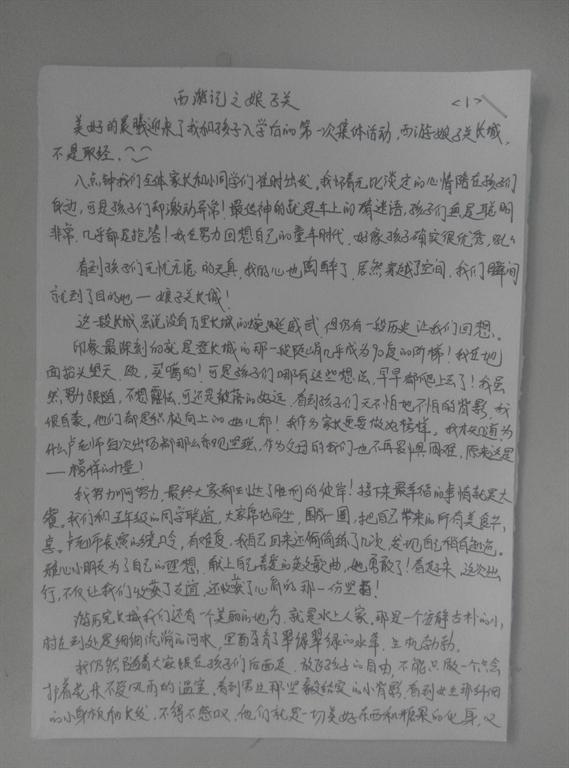 西游记之娘子关 <1>
美好的晨曦迎来了我和孩子入学后的第一次集体活动,西游娘子关长城,
不是取经.
八点钟我们全体家长和小同学们准时出发,我怀着无比淡定的心情陪在孩子们
身边,可是孩子们却激动异常!最传神的就是车上的猜谜语,孩子们真是聪明
非常,几乎都是抢答!我在努力回想自己的童年时代,好象孩子确实很优秀,
看到孩子们无忧无虑的天真,我的心也陶醉了.居然穿越了空间,我们瞬间
就到了目的地—娘子关长城!
这一段长城虽说没有万里长城的蜿蜒威武,但仍有一段历史让我们回想.
印象最深刻的就是登长城的那一段陡峭几乎成为90度的阶梯!我在地
面抬头望天,哎,买噶的!可是孩子们哪有这些想法,早早都爬上去了!我虽
然努力跟随,不想露怯,可还是被落的好远.看到孩子们天不怕地不怕的背影,我
很自豪,他们都是积极向上的好儿郎!我作为家长更要做好榜样.我才知道为
什么卢老师每次出场都那么乐观坚强,作为父母的我们也不再畏惧困难,原来这是
—榜样的力量!
我努力啊努力,最终大家都到达了胜利的彼岸!接下来最幸福的事情就是大
餐.我们和五年级的同学联谊,大家席地而坐,围成一圈,把自己带来的所有美食共
享.卢老师表演的绕口令,有难度.我自己回来还偷偷练了几次,发现自己稍有逊色.
小朋友为了自己的理想,献上自己喜爱的英文歌曲,她勇敢了!看起来,这次出
行,不仅让我们收获了友谊,还收获了心底的那一份坚强!
游历完长城我们还有一个美丽的地方,就是水上人家,那是一个安静古朴的小
村庄到处是细细流淌的河水,里面孕育了翠绿翠绿的水草,生机勃勃.
我仍然随着大家跟在孩子们后面走,放飞孩子的自由,不能只做一个只会
护着花朵不受风雨的温室,看到男生那坚毅结实的小背影,看到女生那纤细
的小身板和长发,不得不感叹,他们就是一切美好东西和糖果的化身,又